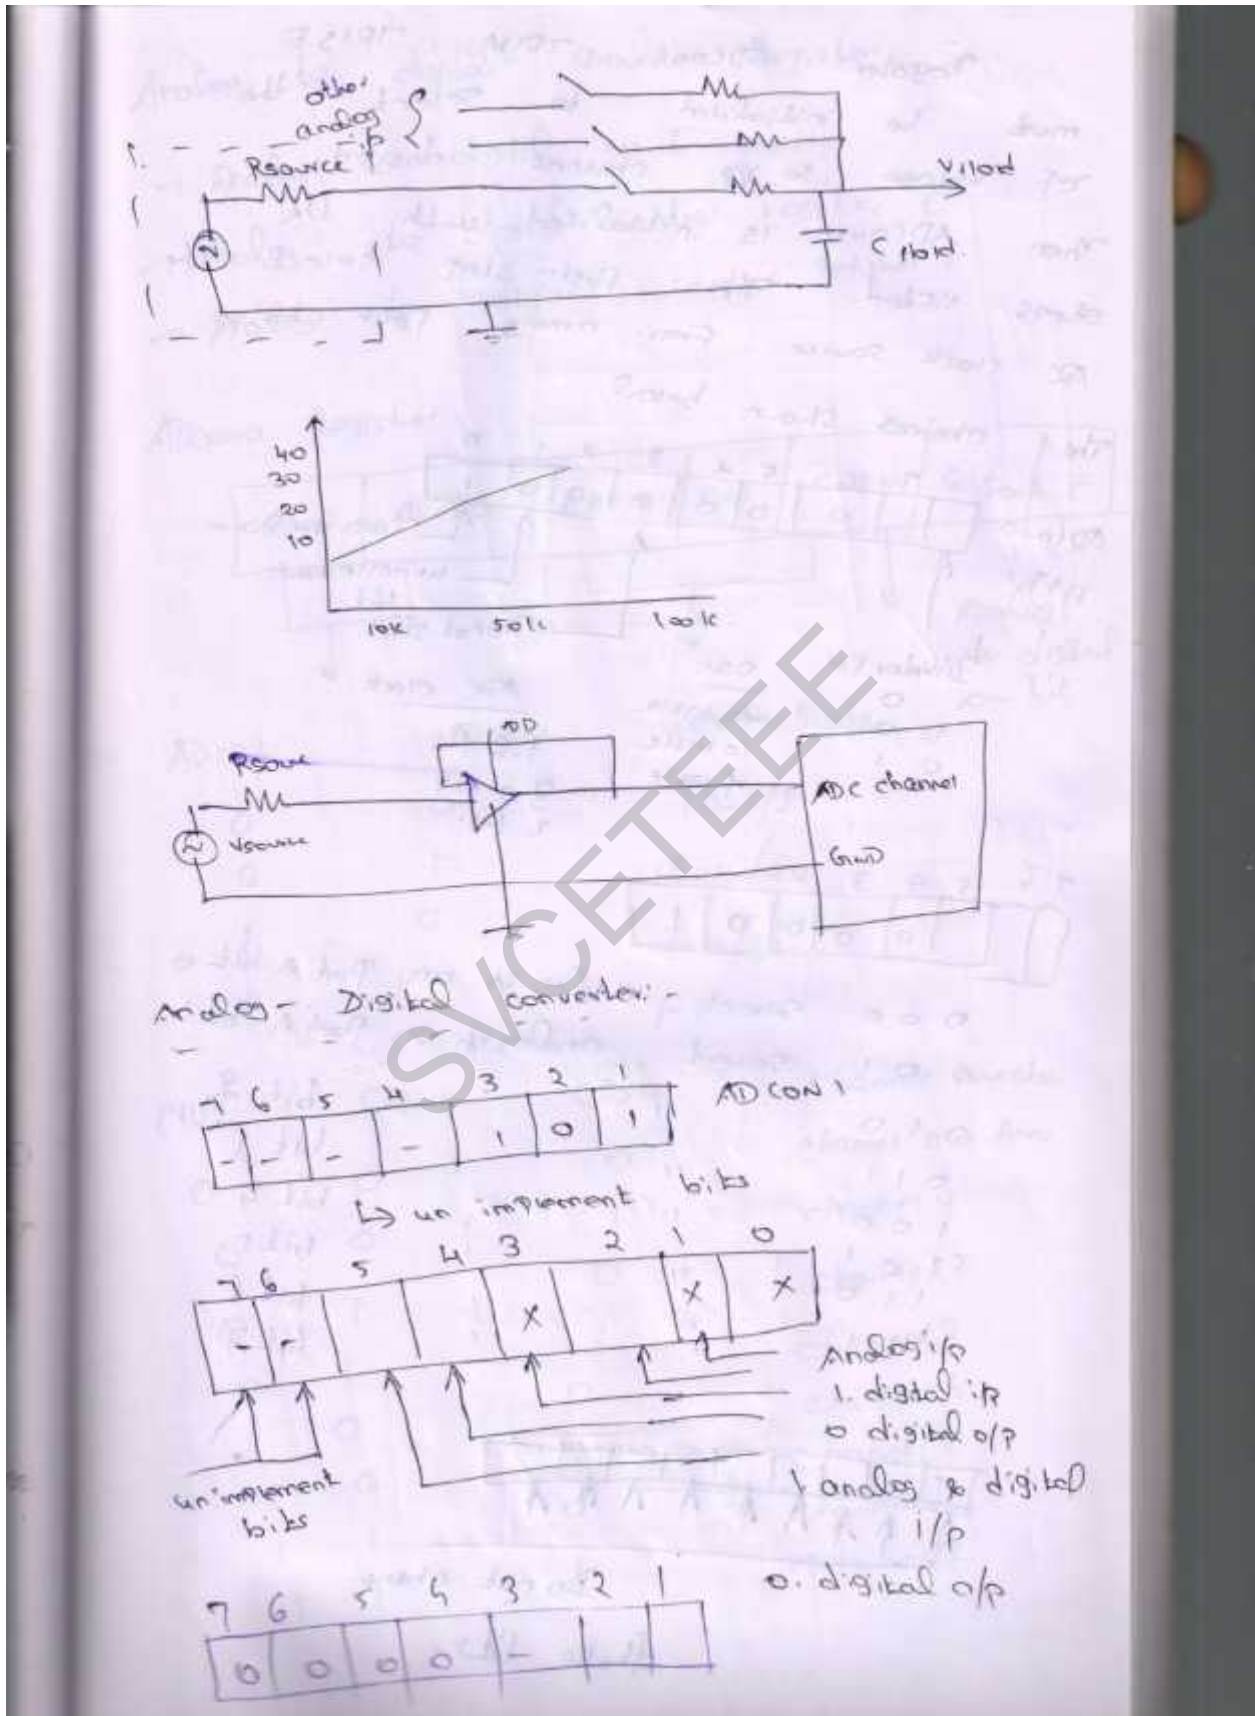 other
analog
i.p
Rsource
Vhold
C hold
40
30
20
10
10K 50k 100k
Rsource
Vsource
ADC channel
GND
Analog - Digital converter:-
7 6 5 4 3 2 1
- - - - 1 0 1
ADCON 1
↳ un implement bits
7 6 5 4 3 2 1 0
- - X X X
Analog i/p
1. digital i/p
0 digital o/p
1 analog & digital
i/p
0. digital o/p
unimplement
bits
7 6 5 4 3 2 1
0 0 0 0 -
SVCETEEE